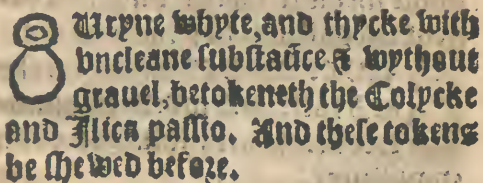 8 Uryne whyte, and thycke with
vncleane substāce & wythout
grauel, betokeneth the Colycke
and Ilica passio. And these tokens
be shewed before.